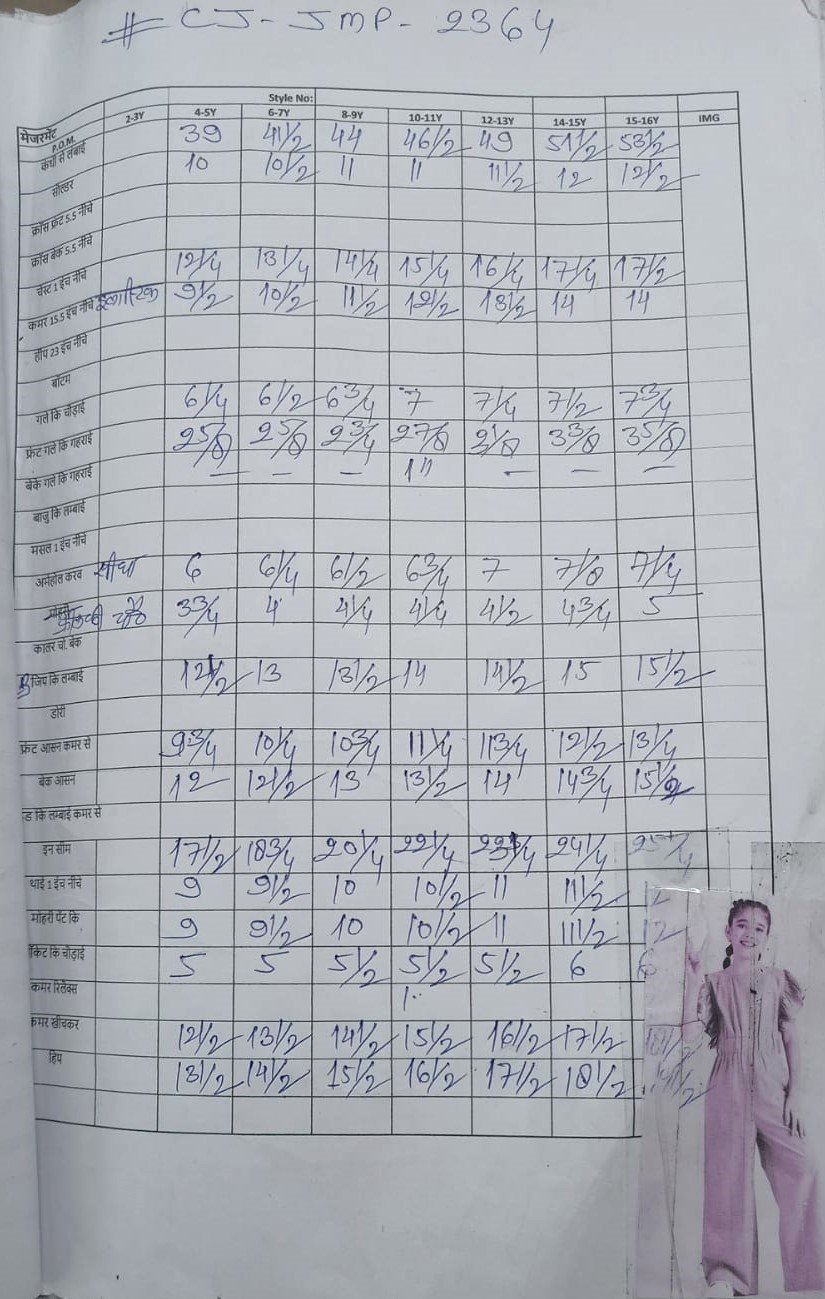 # CJ - JMP - 2364
Style No:
मेजरमेंट P.O.M. 2-3Y 4-5Y 6-7Y 8-9Y 10-11Y 12-13Y 14-15Y 15-16Y IMG
कंधों से लंबाई 39 41 1/2 44 46 1/2 49 51 1/2 53 1/2
सोल्डर 10 10 1/2 11 11 11 1/2 12 12 1/2
क्रॉस फ्रंट 5.5 नीचे
क्रॉस बेक 5.5 नीचे
चेस्ट 1 इंच नीचे 12 1/4 13 1/4 14 1/4 15 1/4 16 1/4 17 1/4 17 1/2
कमर 15.5 इंच नीचे इलास्टिक 9 1/2 10 1/2 11 1/2 12 1/2 13 1/2 14 14
हीप 23 इंच नीचे
बॉटम
गले कि चौड़ाई 6 1/4 6 1/2 6 3/4 7 7 1/4 7 1/2 7 3/4
फ्रंट गले कि गहराई 2 5/8 2 5/8 2 3/4 2 7/8 3 3/8 3 5/8
बेक गले कि गहराई — — — 1" — — —
बाजु कि लम्बाई
मसल 1 इंच नीचे
अर्महोल करव सीधा 6 6 1/4 6 1/2 6 3/4 7 7 1/8 7 1/4
मोहरी 3 3/4 4 4 1/4 4 1/4 4 1/2 4 3/4 5
कालर चौ. बेक
जिप कि लम्बाई 12 1/2 13 13 1/2 14 14 1/2 15 15 1/2
डोरी
फ्रंट आसन कमर से 9 3/4 10 1/4 10 3/4 11 1/4 11 3/4 12 1/2 13 1/4
बेक आसन 12 12 1/2 13 13 1/2 14 14 3/4 15 1/2
ड कि लम्बाई कमर से
इन सीम 17 1/2 18 3/4 20 1/4 22 1/4 24 1/4 25 1/4
थाई 1 इंच नीचे 9 9 1/2 10 10 1/2 11 11 1/2 12
मोहरी पेंट कि 9 9 1/2 10 10 1/2 11 11 1/2 12
पॉकेट कि चौड़ाई 5 5 5 1/2 5 1/2 5 1/2 6 6
कमर रिलेक्स
कमर खींचकर 12 1/2 13 1/2 14 1/2 15 1/2 16 1/2 17 1/2 18 1/2
हिप 13 1/2 14 1/2 15 1/2 16 1/2 17 1/2 18 1/2 19 1/2